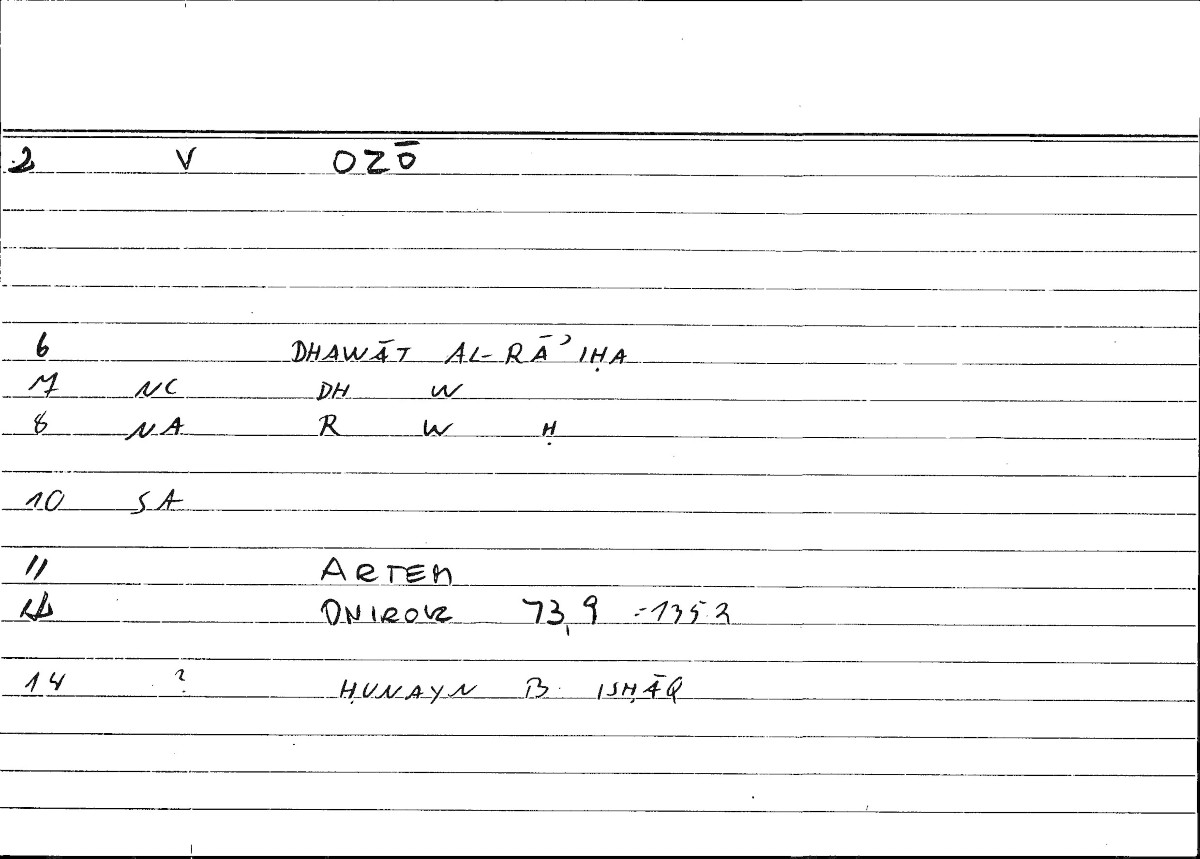 2 V OZŌ
6 DHAWĀT AL-RĀʾIḤA
7 NC DH W
8 NA R W Ḥ
10 SA
11 ARTEM
ONIROK 73,9 =135.2
14 ? ḤUNAYN B. ISḤĀQ